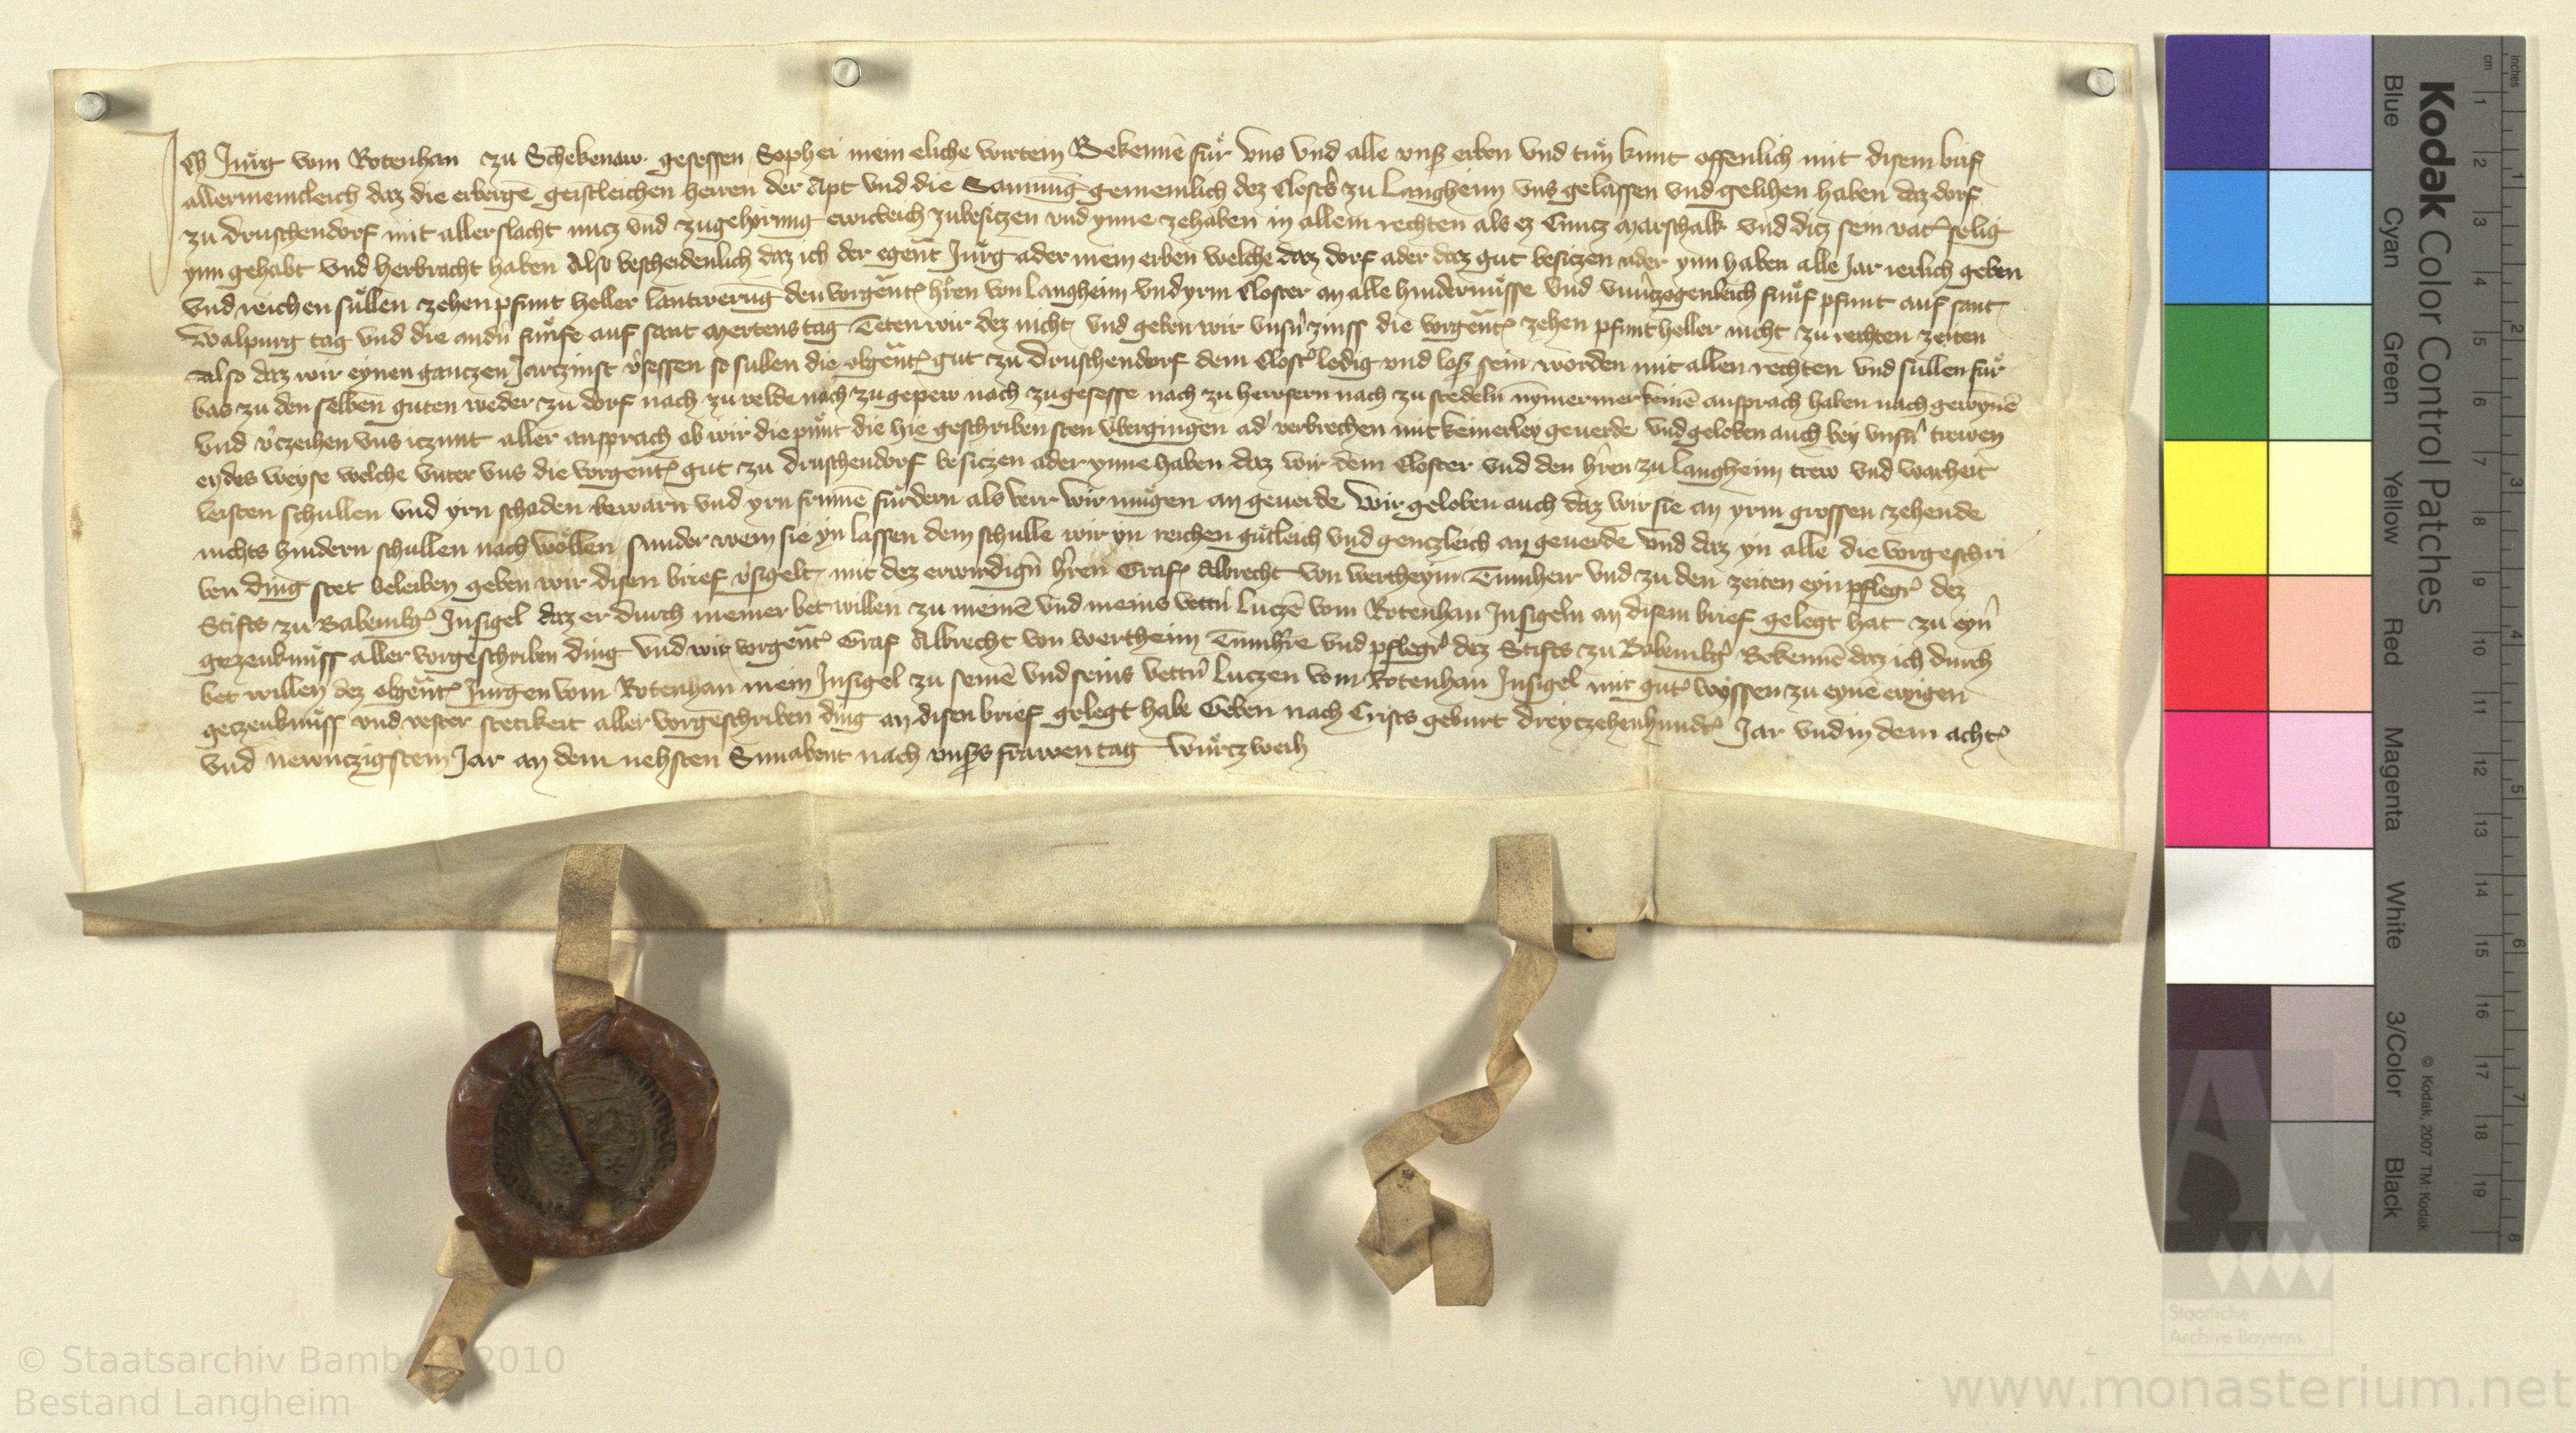 Ich Jurg vom Rotenhan zu Schekenaw gesessen Sophei mein eliche wirtein Bekenne fur vns vnd alle vnß erben vnd tun kunt offenlich mit disem brif
allermeincleich daz die erberge geistleichen herren der Apt vnd die Samnug gemeinlich dez Closters zu Langheim vns gelassen vnd gelihen haben daz dorf
zu Druschendorf mit aller slacht nucz vnd zugehorung ewicleich zubesiczen vnd ynne zehaben in allem rechten als ez Cuncz Marschalk vnd dicz sein vat' selig
ynn gehabt vnd herbracht haben Also bescheidenlich daz ich der egent Jurg ader mein erben welche daz dorf ader daz gut besiczen ader ynn haben alle Jar ierlich geben
vnd reichen sullen zehen pfunt heller lantwerug den vorgent' h'ren von Langheim vnd yrm Closter an alle hindernusse vnd vnu'czogenleich funf pfunt auf sant
Walpurg tag vnd die and'n funfe auf sant Mertens tag Teten wir dez nicht vnd geben wir vnsn' zinss die vorgent' zehen pfunt heller nicht zu rechten zeiten
Also daz wir eynen ganczen Jarzinst v'sessen so sullen die obgent' gut zu Druschendorf dem Clost' ledig vnd loß sein worden mit allen rechten vnd sullen fur
bas zu den selben guten weder zu dorf nach zu velde nach zu gepew nach zu gesesse nach zu hewsern nach zu stedeln nymermer keine ansprach haben nach gewyne
vnd v'czeihen vns iczunt aller ansprach ob wir die punt die hie geschriben sten vbergingen ad' verbrechen mit keinerley geuerde vnd geloben auch bey vnsn' trewen
eydes weyse welche vnter vns die vorgent' gut zu Druschendorf besiczen ader ynne haben daz wir dem Closter vnd den h'ren zu Langheim trew vnd warheit
leisten schullen vnd yrn schaden bewarn vnd yrn frume furdern als verr wir mugen an geuerde Wir geloben auch daz wir sie an yrm grossen zehende
nichts hindern schullen nach wollen sunder wem sie yn lassen dem schulle wir yn reichen gutleich vnd genczleich an geuerde vnd daz yn alle die vorgeschri
ben ding stet beleiben geben wir disen brief v'sigelt mit dez erwirdign h'ren Graf' Albrecht von Wertheym Tumherr vnd zu den zeiten eyn pfleg' dez
Stifts zu Babemb'g Insigel daz er durch meiner bet willen zu meine vnd meins vettn' Lucze vom Rotenhan Insigeln an disem brief gelegt hat zu eyn'
gezeuknuss aller vorgeschriben ding vnd wir vorgent' Graf Albrecht von Wertheim Tumh're vnd pfleg' dez Stifts zu Babemb'g Bekenne daz ich durch
bet willen dez obgent' Jurgen vom Rotenhan mein Insigel zu seine vnd seins vettn' Luczen vom Rotenhan Insigel mit gut' wyssen zu eyne ewigen
geczeuknuss vnd vester stetikeit aller vorgeschriben ding an disen brief gelegt habe Geben nach Crists geburt dreyczehenhund't Jar vnd in dem acht'
vnd newnczigstem Jar an dem nehsten Sunabent nach vnßs frawen tag Wurczweih
Kodak Color Control Patches
Blue Cyan Green Yellow Red Magenta White 3/Color Black
© Kodak, 2007 TM: Kodak
cm 1 2 3 4 5 6 7 8 9 10 11 12 13 14 15 16 17 18 19
inches 1 2 3 4 5 6 7 8
Staatliche
Archive Bayerns
© Staatsarchiv Bamberg 2010
Bestand Langheim
www.monasterium.net